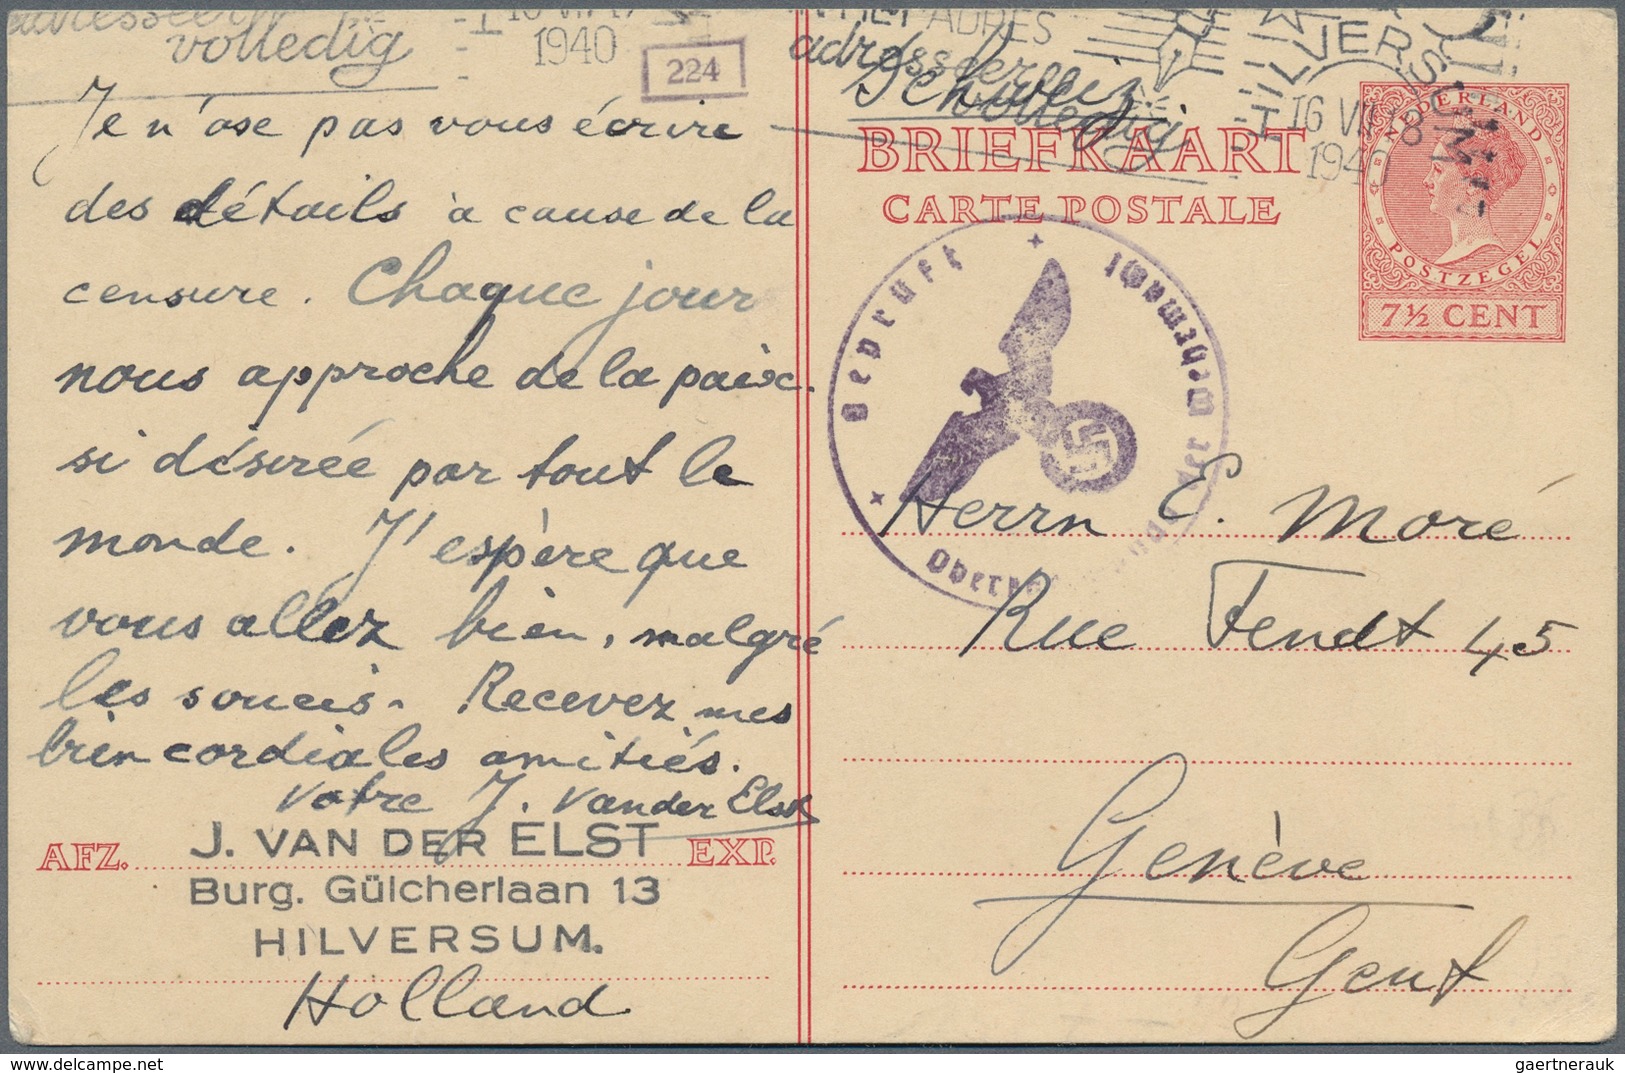 adresseer
volledig
1940
224
Je n'ose pas vous écrire
des détails à cause de la
censure. Chaque jour
nous approche de la paix.
si désirée par tout le
monde. J'espère que
vous allez bien, malgré
les soucis. Recevez mes
bien cordiales amitiés.
Votre J. Vander Elst
AFZ. EXP.
J. VAN DER ELST
Burg. Gülcherlaan 13
HILVERSUM.
Holland
ADRES
adresseer
volledig
Schweiz
HILVERSUM
16 VII 18
1940
BRIEFKAART
CARTE POSTALE
NEDERLAND
POSTZEGEL
7½ CENT
Geprüft
Oberkommando der Wehrmacht
Herrn E. Moré
Rue Fendt 45
Genève
Genf
gaertnerauk